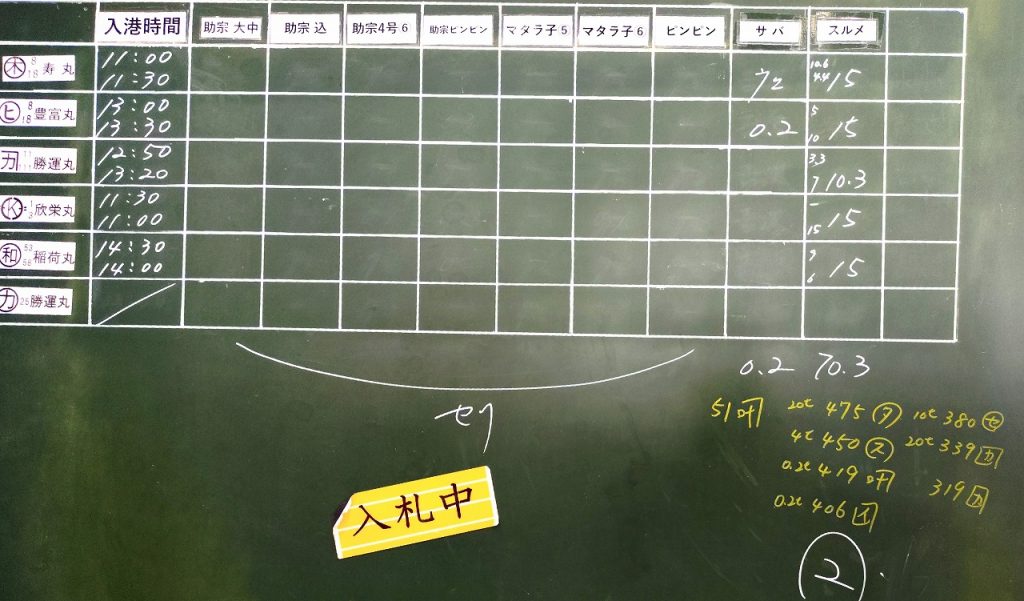 入港時間 助宗 大中 助宗 込 助宗4号6 助宗ピンピン マタラ子5 マタラ子6 ピンピン サバ スルメ
木 8 18 寿丸 11:00 11:30 10.6 4.4 15
ヒ 8 18 豊富丸 13:00 13:30 0.2 5 10 15
カ 勝運丸 12:50 13:20 3.3 7 10.3
K 1 3 欣栄丸 11:30 11:00 - 15 15
和 53 58 稲荷丸 14:30 14:00 9 6 15
カ 25 勝運丸
0.2 70.3
セリ
51 叶 20t 475 タ 10t 380 セ
4t 450 ス 20t 339 カ
0.2t 419 叶 319 カ
0.2t 406 イ
入札中
2